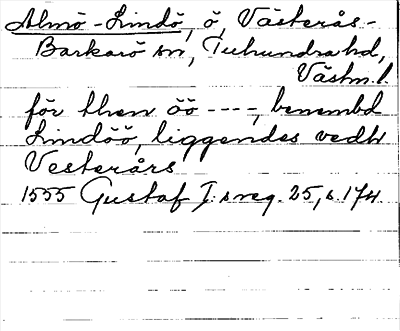 Almö-Lindö, ö, Västerås-
Barkarö sn, Tuhundra hd,
Västm. l.
för then öö ----, benembd
Lindöö, liggendes vedh
Vesterårs
1555 Gustaf I:s reg. 25, s. 174